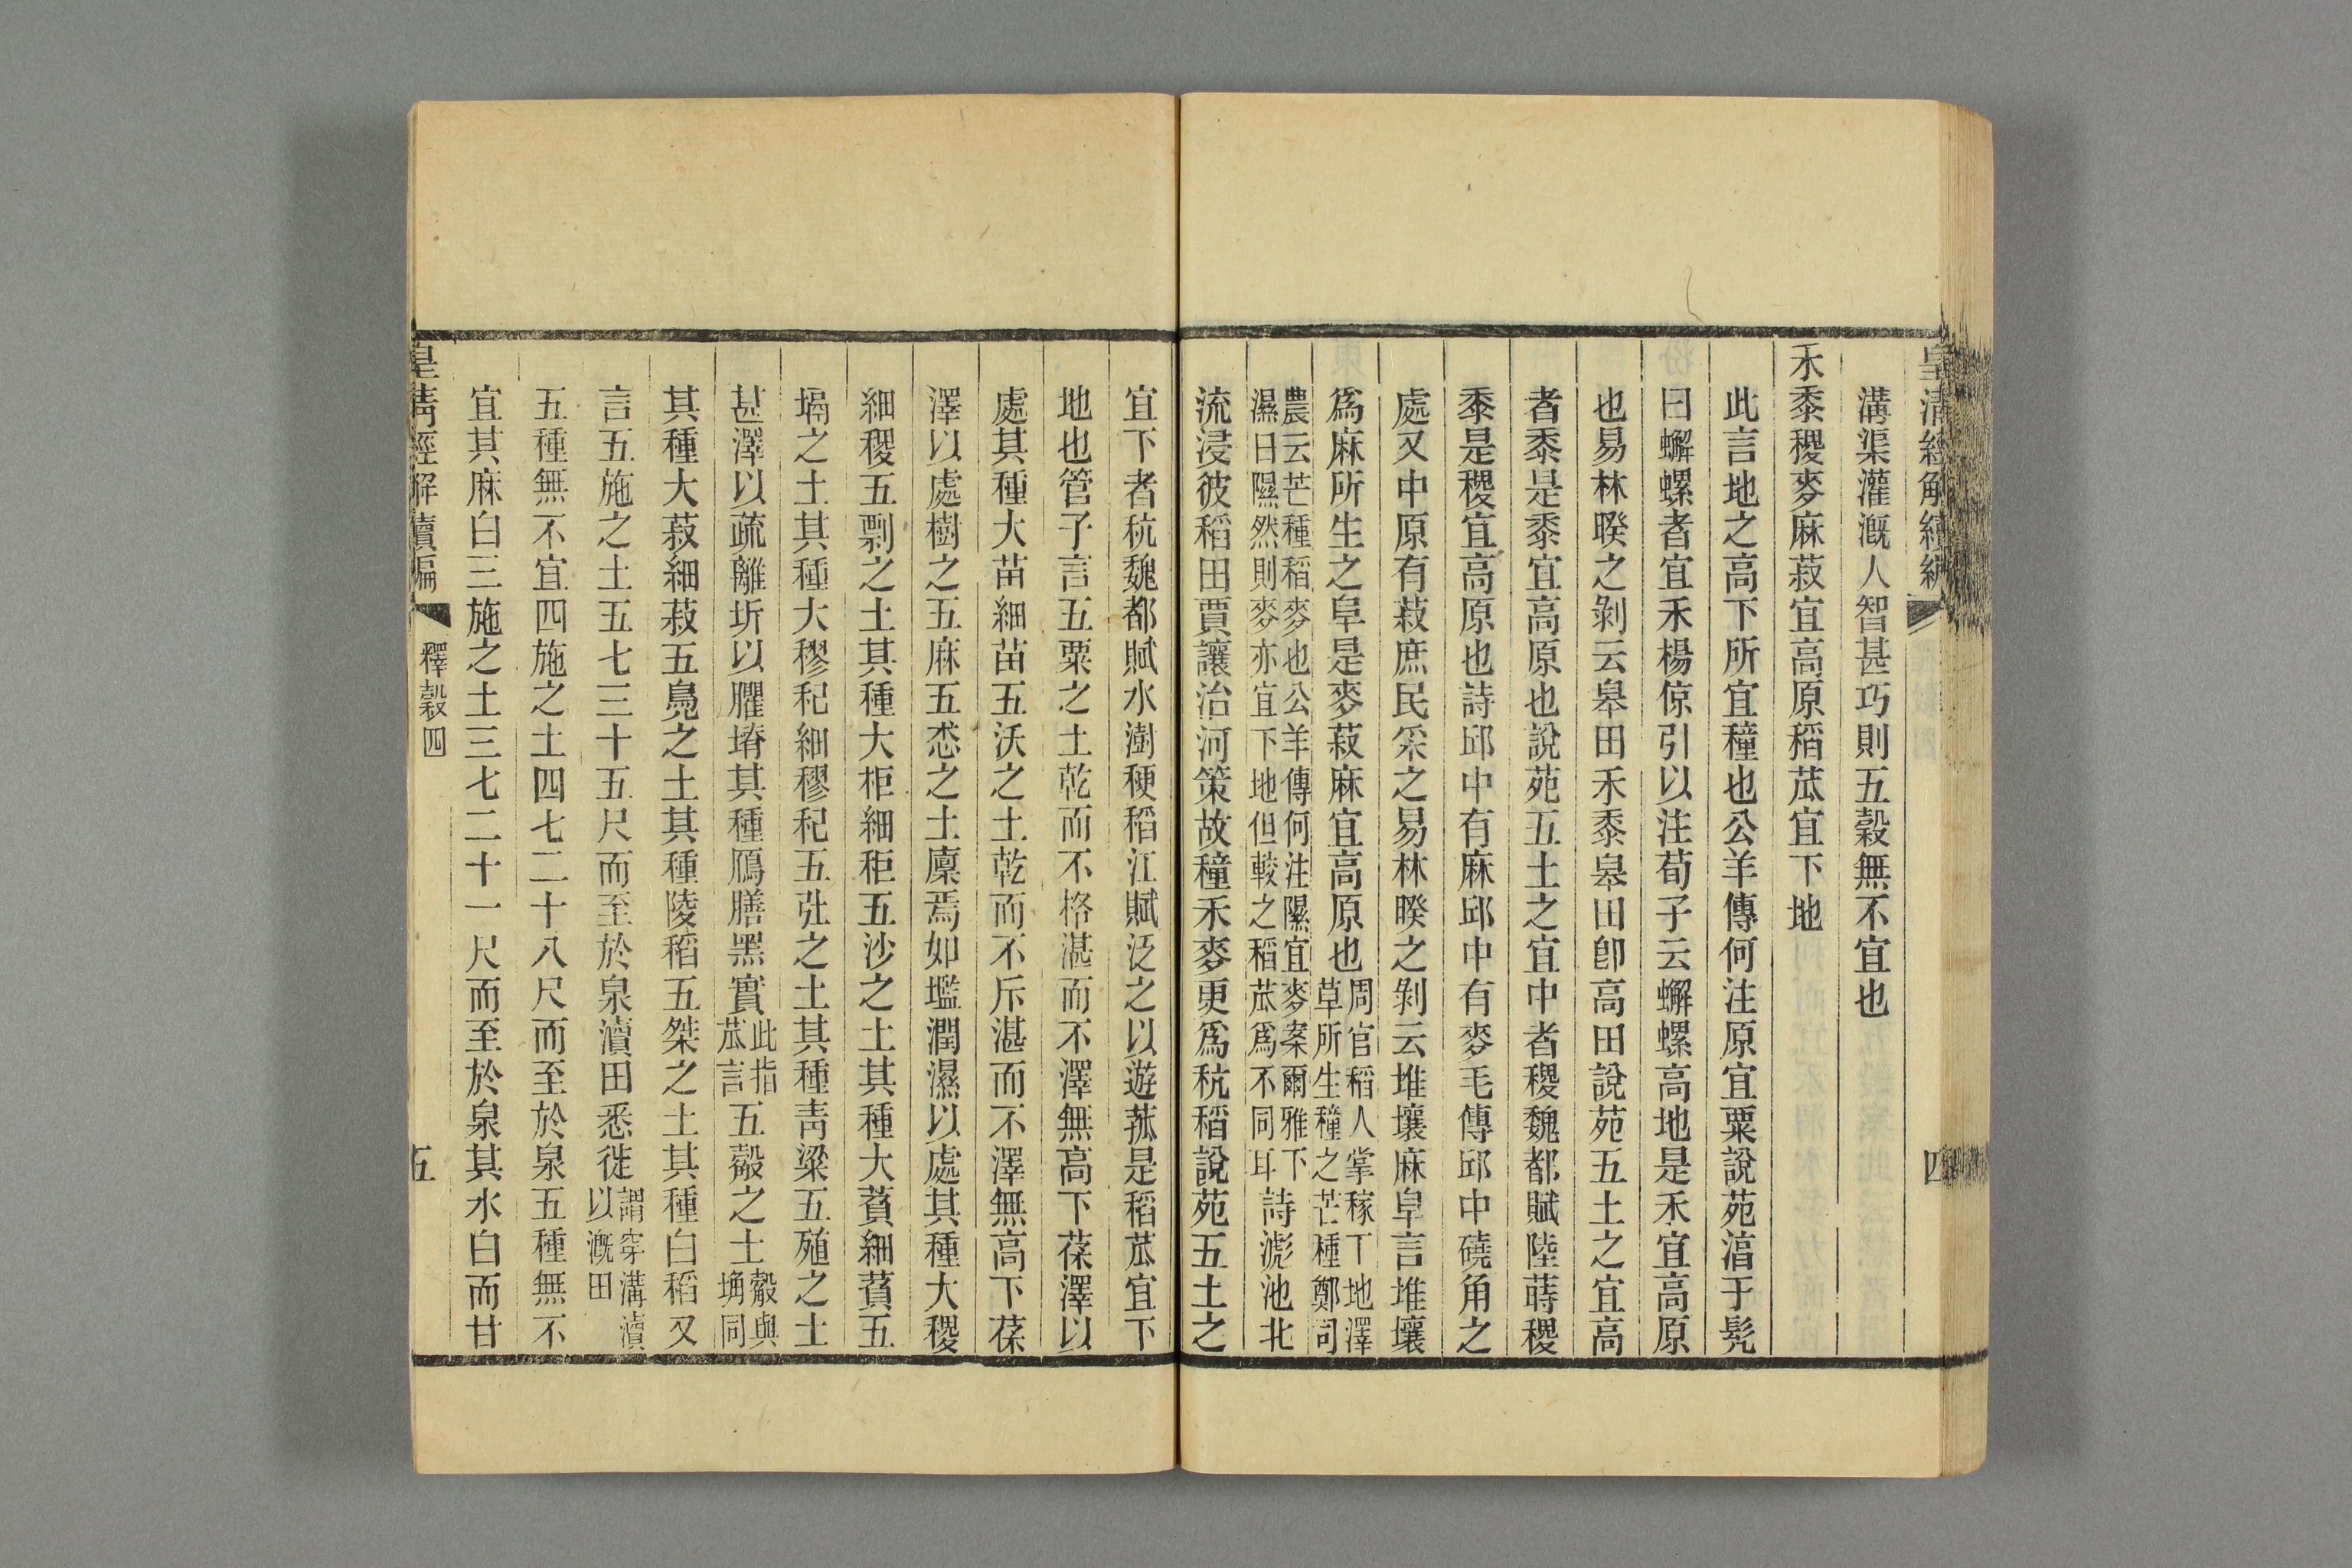 皇清經解續編
四
溝渠灌漑人智甚巧則五穀無不宜也
禾黍稷麥麻菽宜高原稻苽宜下地
此言地之高下所宜穜也公羊傳何注原宜粟說苑湻于髡
曰蠏螺者宜禾楊倞引以注荀子云蠏螺高地是禾宜高原
也易林暌之剝云皋田禾黍皋田卽高田說苑五土之宜高
者黍是黍宜高原也說苑五土之宜中者稷魏都賦陸蒔稷
黍是稷宜高原也詩邱中有麻邱中有麥毛傳邱中磽角之
處又中原有菽庶民采之易林暌之剝云堆壤麻阜言堆壤
爲麻所生之阜是麥菽麻宜高原也周官稻人掌稼下地澤草所生穜之芒種鄭司
農云芒種稻麥也公羊傳何注隰宜麥案爾雅下濕曰隰然則麥亦宜下地但較之稻苽爲不同耳詩滮池北
流浸彼稻田賈讓治河策故穜禾麥更爲秔稻說苑五土之
宜下者秔魏都賦水澍稉稻江賦泛之以遊菰是稻苽宜下
地也管子言五粟之土乾而不格湛而不澤無高下葆澤以
處其種大苗細苗五沃之土乾而不斥湛而不澤無高下葆
澤以處樹之五麻五悉之土廩焉如壏潤濕以處其種大稷
細稷五剽之土其種大秬細秬五沙之土其種大萯細萯五
塥之土其種大穋秜細穋秜五壯之土其種靑粱五殖之土
甚澤以疏離坼以臞塉其種鴈膳黑實此指苽言五觳之土觳與埆同
其種大菽細菽五鳧之土其種陵稻五桀之土其種白稻又
言五施之土五七三十五尺而至於泉瀆田悉徙謂穿溝瀆以漑田
五種無不宜四施之土四七二十八尺而至於泉五種無不
宜其麻白三施之土三七二十一尺而至於泉其水白而甘
皇淸經解續編
釋穀四
五